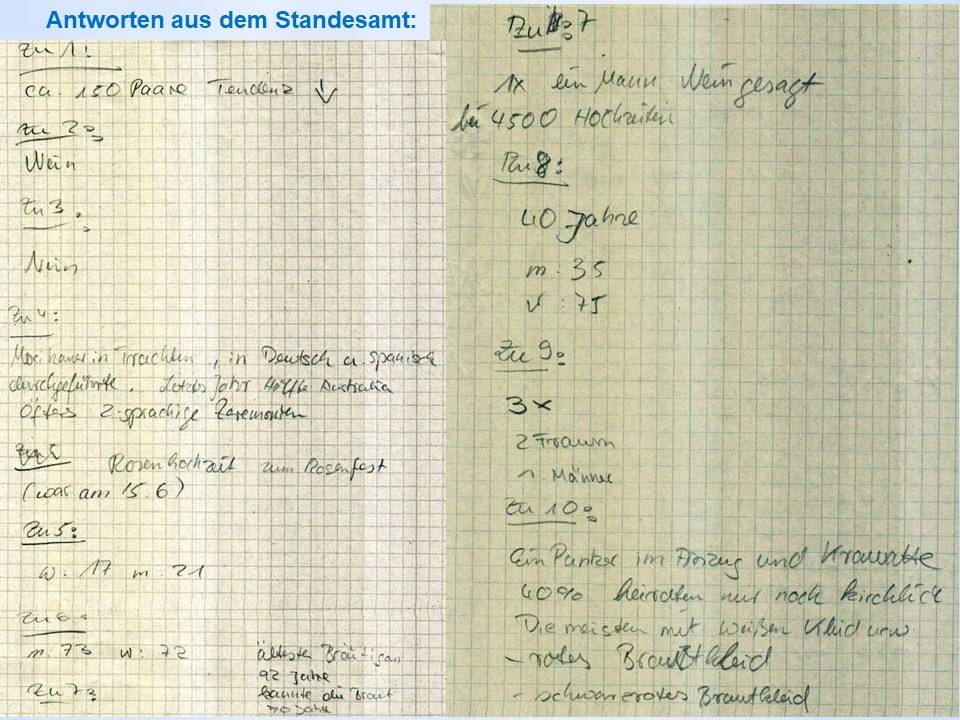 Antworten aus dem Standesamt:
Zu 1:
ca. 150 Paare Tendenz ↓
Zu 2:
Nein
Zu 3:
Nein
Zu 4:
in Trachten, in Deutsch u. Spanisch
durchgeführte. Letztes Jahr Hälfte Australia
Öfters 2-sprachige Zeremonien
Rosenhochzeit zum Rosenfest
(war am 15.6)
Zu 5:
w: 17 m: 21
Zu 6:
m: 73 w: 72 ältester Bräutigam
92 Jahre
kannte die Braut
70 Jahre
Zu 7:
Zu 7
1x ein Mann Nein gesagt
bei 4500 Hochzeiten
Zu 8:
40 Jahre
m: 35
: 75
Zu 9:
3x
2 Frauen
1. Männer
Zu 10:
Ein Panker im Anzug und Krawatte
40% heiraten nur noch kirchlich
Die meisten mit weißen Kleid usw.
- rotes Brautkleid
- schwarzrotes Brautkleid